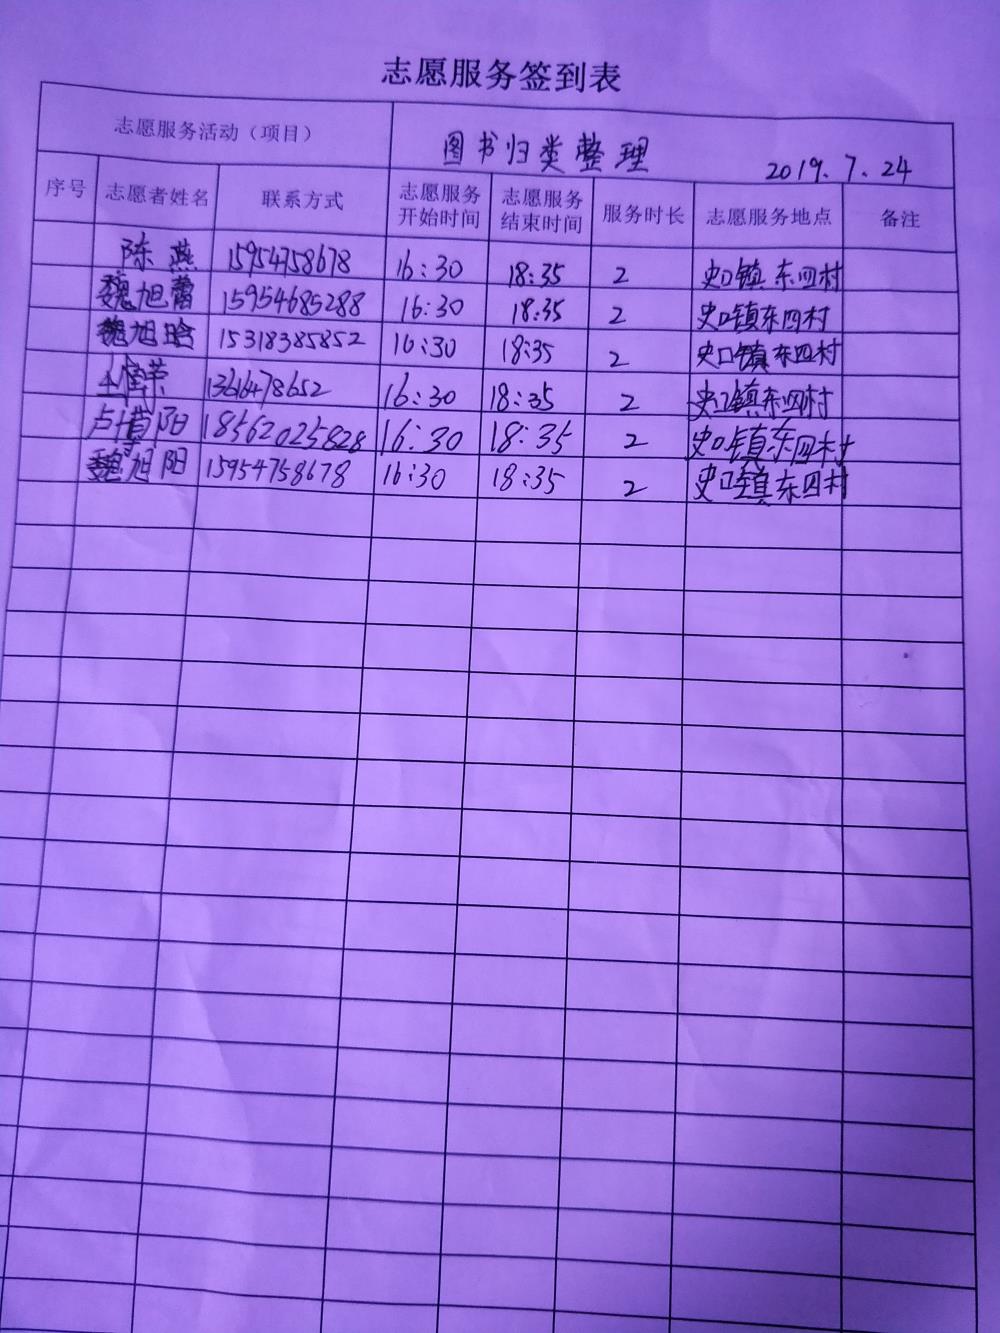 志愿服务签到表
志愿服务活动（项目） 图书归类整理 2019.7.24
序号 志愿者姓名 联系方式 志愿服务开始时间 志愿服务结束时间 服务时长 志愿服务地点 备注
陈燕 15954758678 16:30 18:35 2 史口镇东四村
魏旭蕾 15954685288 16:30 18:35 2 史口镇东四村
魏旭晗 15318385852 16:30 18:35 2 史口镇东四村
13616478652 16:30 18:35 2 史口镇东四村
18562025828 16:30 18:35 2 史口镇东四村
魏旭阳 15954758678 16:30 18:35 2 史口镇东四村